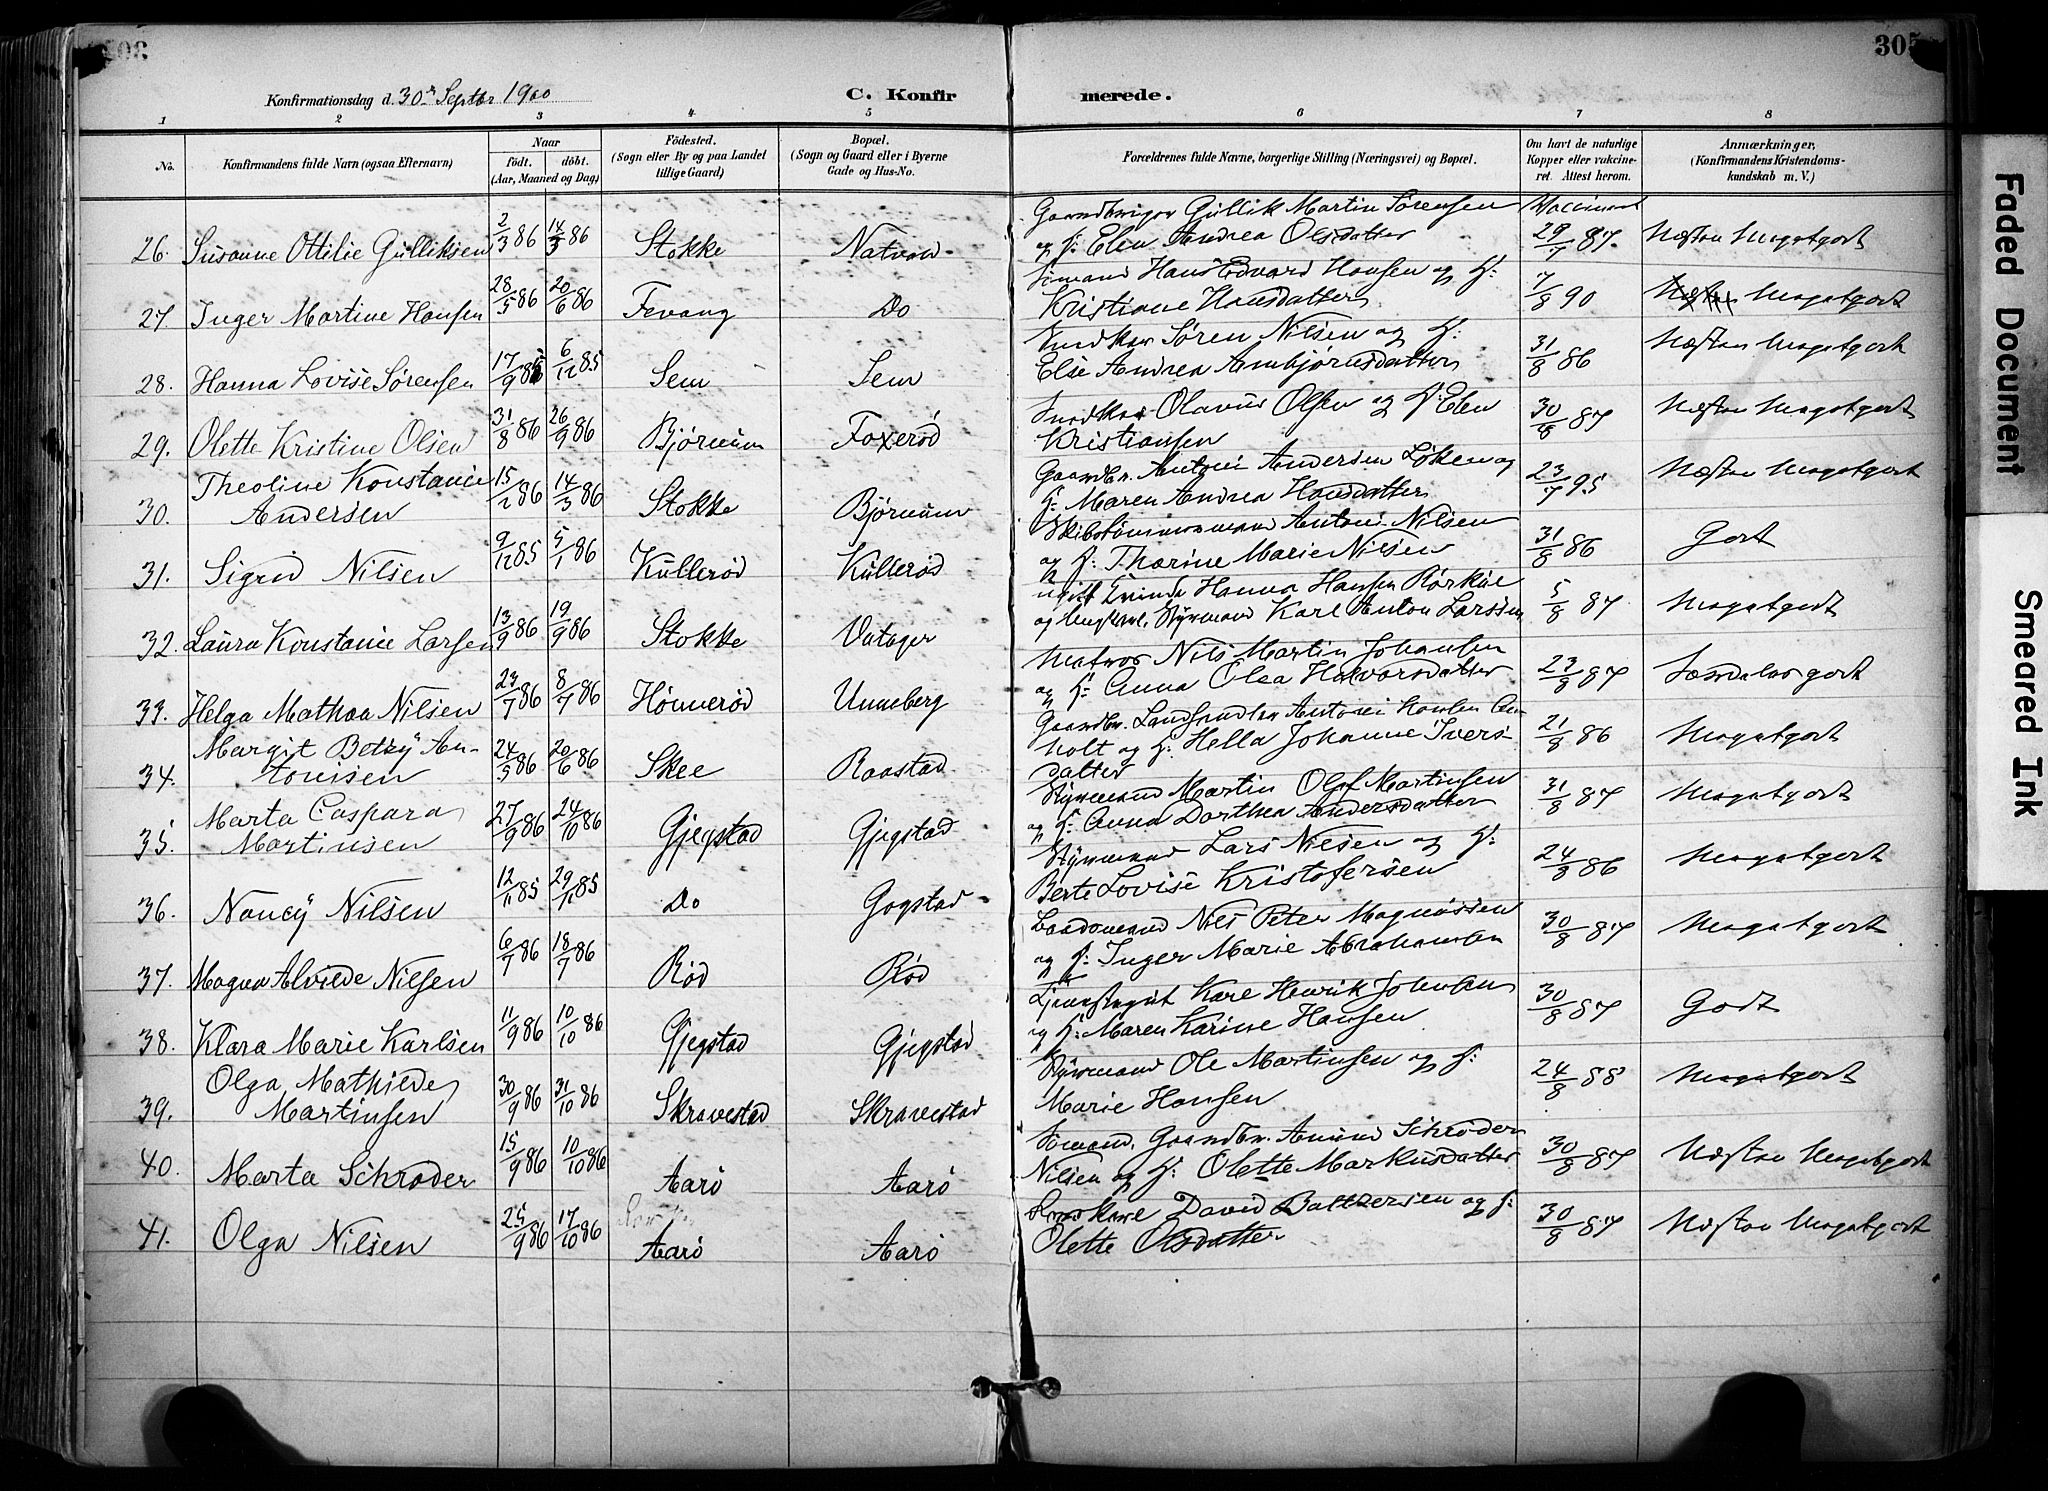 305
Konfirmationsdag d. 30te Septbr 1900
C. Konfirmerede.
1 2 3 4 5 6 7 8
No. Konfirmandens fulde Navn (ogsaa Efternavn) Naar født. døbt. (Aar, Maaned og Dag) Födested. (Sogn eller By og paa Landet tillige Gaard) Bopæl. (Sogn og Gaard eller i Byerne Gade og Hus-No. Forældrenes fulde Navne, borgerlige Stilling (Næringsvei) og Bopæl. Om havt de naturlige Kopper eller vakcineret. Attest herom. Anmærkninger, (Konfirmandens Kristendomskundskab m. V.)
Gaardbruger Gullik Martin Sørensen Vaccineret
26. Susanne Ottilie Gulliksen 2/3 86 14/3 86 Stokke og H: Elen Andrea Olsdatter 29/7 87 Næsten Megetgodt
Sømand Hans Edvard Hansen og H:
27 Inger Martine Hansen 28/5 86 20/6 86 Fevang Do Kristiane Hansdatter 7/8 90 Megetgodt
Snedker Søren Nilsen og H:
28. Hanna Lovise Sørensen 17/9 85 6/12 85 Sem Sem Else Andrea Arnbjørnsdatter 31/8 86 Næsten Megetgodt
Snedker Olavus Olsen og H: Elen
29. Olette Kristine Olsen 31/8 86 26/9 86 Bjørnum Foxerød Kristiansen 30/8 87 Næsten Megetgodt
Theoline Konstanse Gaardbr. Antoni Andersen Løken og
30. Andersen 15/2 86 14/3 86 Stokke Bjørnum H: Maren Andrea Hansdatter 23/7 95 Næsten Megetgodt
Skibstømmermand Antoni Nilsen
31. Sigrid Nilsen 9/12 85 5/1 86 Kullerød Kullerød og H: Thorine Marie Nilsen 31/8 86 Godt
ugift Kvinde Hanna Hansen Rørkoll
32. Laura Konstanse Larsen 13/9 86 19/9 86 Stokke Vatager og Ungkarl, Styrmand Karl Anton Larssen 5/8 87 Megetgodt
Matros Nils Martin Johansen
33. Helga Mathea Nilsen 23/7 86 8/7 86 Hønnerød Unneberg og H: Anna Olea Halvorsdatter 23/8 87 Særdeles godt
Margit Betzy An- Gaardbr. Landhandler Antoni Hansen An-
34. tonisen 24/5 86 20/6 86 Skee Raastad holt og H: Hella Johanne Ivers- 21/8 86 Megetgodt
datter
Marta Caspara Styrmand Martin Olaf Martinsen
35. Martinsen 27/9 86 24/10 86 Gjegstad Gjegstad og H: Anna Dorthea Andersdatter 31/8 87 Megetgodt
Styrmand Lars Nilsen og H:
36. Nancy Nilsen 12/11 85 29/11 85 Do Gogstad Berte Lovise Kristofersen 24/8 86 Megetgodt
Baadsmand Nils Peter Magnussen
37. Magna Alvilde Nilsen 6/7 86 18/7 86 Rød Rød og H: Inger Marie Abrahamsen 30/8 87 Megetgodt
Karl Henrik Johansen
38. Klara Marie Karlsen 11/9 86 10/10 86 Gjegstad Gjegstad og H: Maren Karine Hansen 30/8 87 Godt
Olga Mathilde Styrmand Ole Martinsen og H:
39. Martinsen 30/9 86 31/10 86 Skravestad Skravestad Marie Hansen 24/8 88 Megetgodt
Sømand, Gaardbr. Amund Schrøder
40. Marta Schrøder 15/9 86 10/10 86 Aarø Aarø Nilsen og H: Olette Markusdatter 30/8 87 Næsten Megetgodt
Snedker David Baltzersen og H:
41. Olga Nilsen 25/9 86 17/10 86 Aarø Aarø Olette Olsdatter 30/8 87 Næsten Megetgodt
Faded Document
Smeared Ink